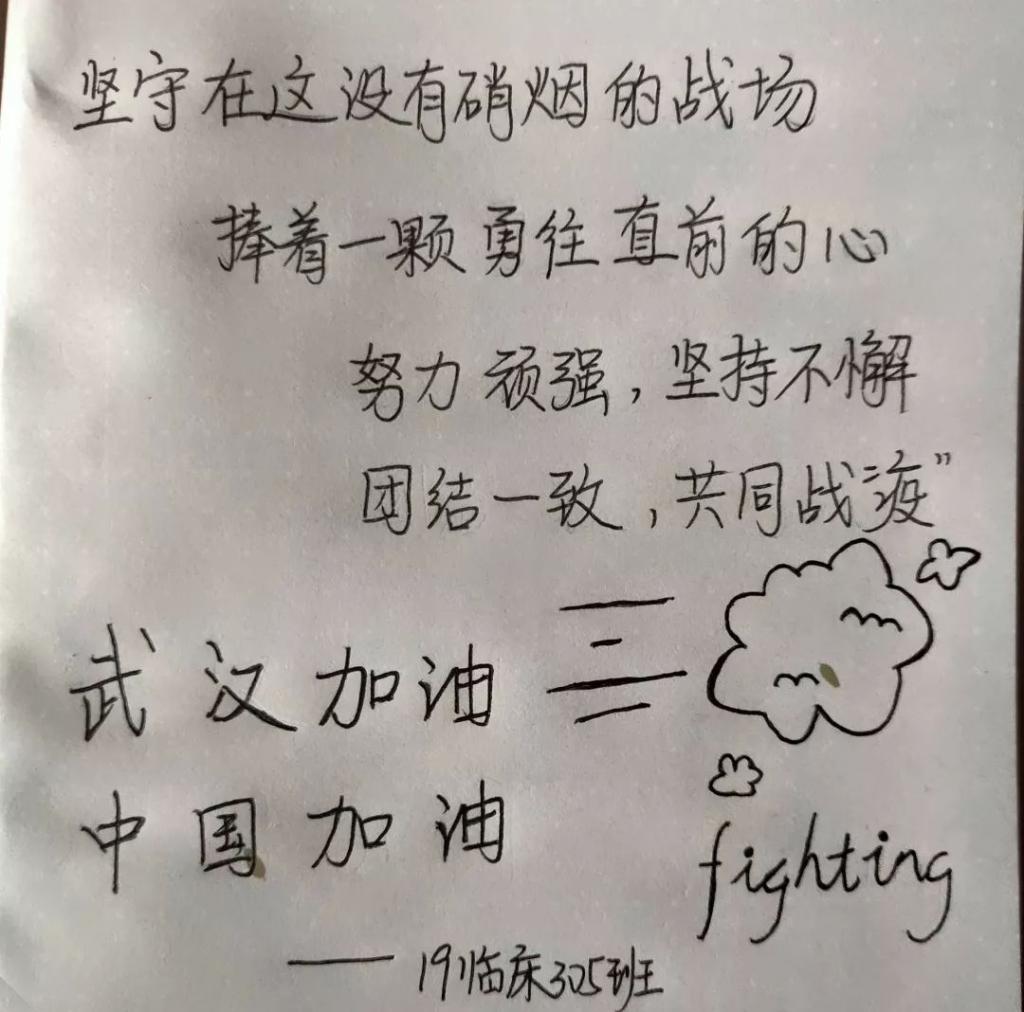 坚守在这没有硝烟的战场
捧着一颗勇往直前的心
努力顽强，坚持不懈
团结一致，共同战疫”
武汉加油
中国加油
fighting
——19临床305班